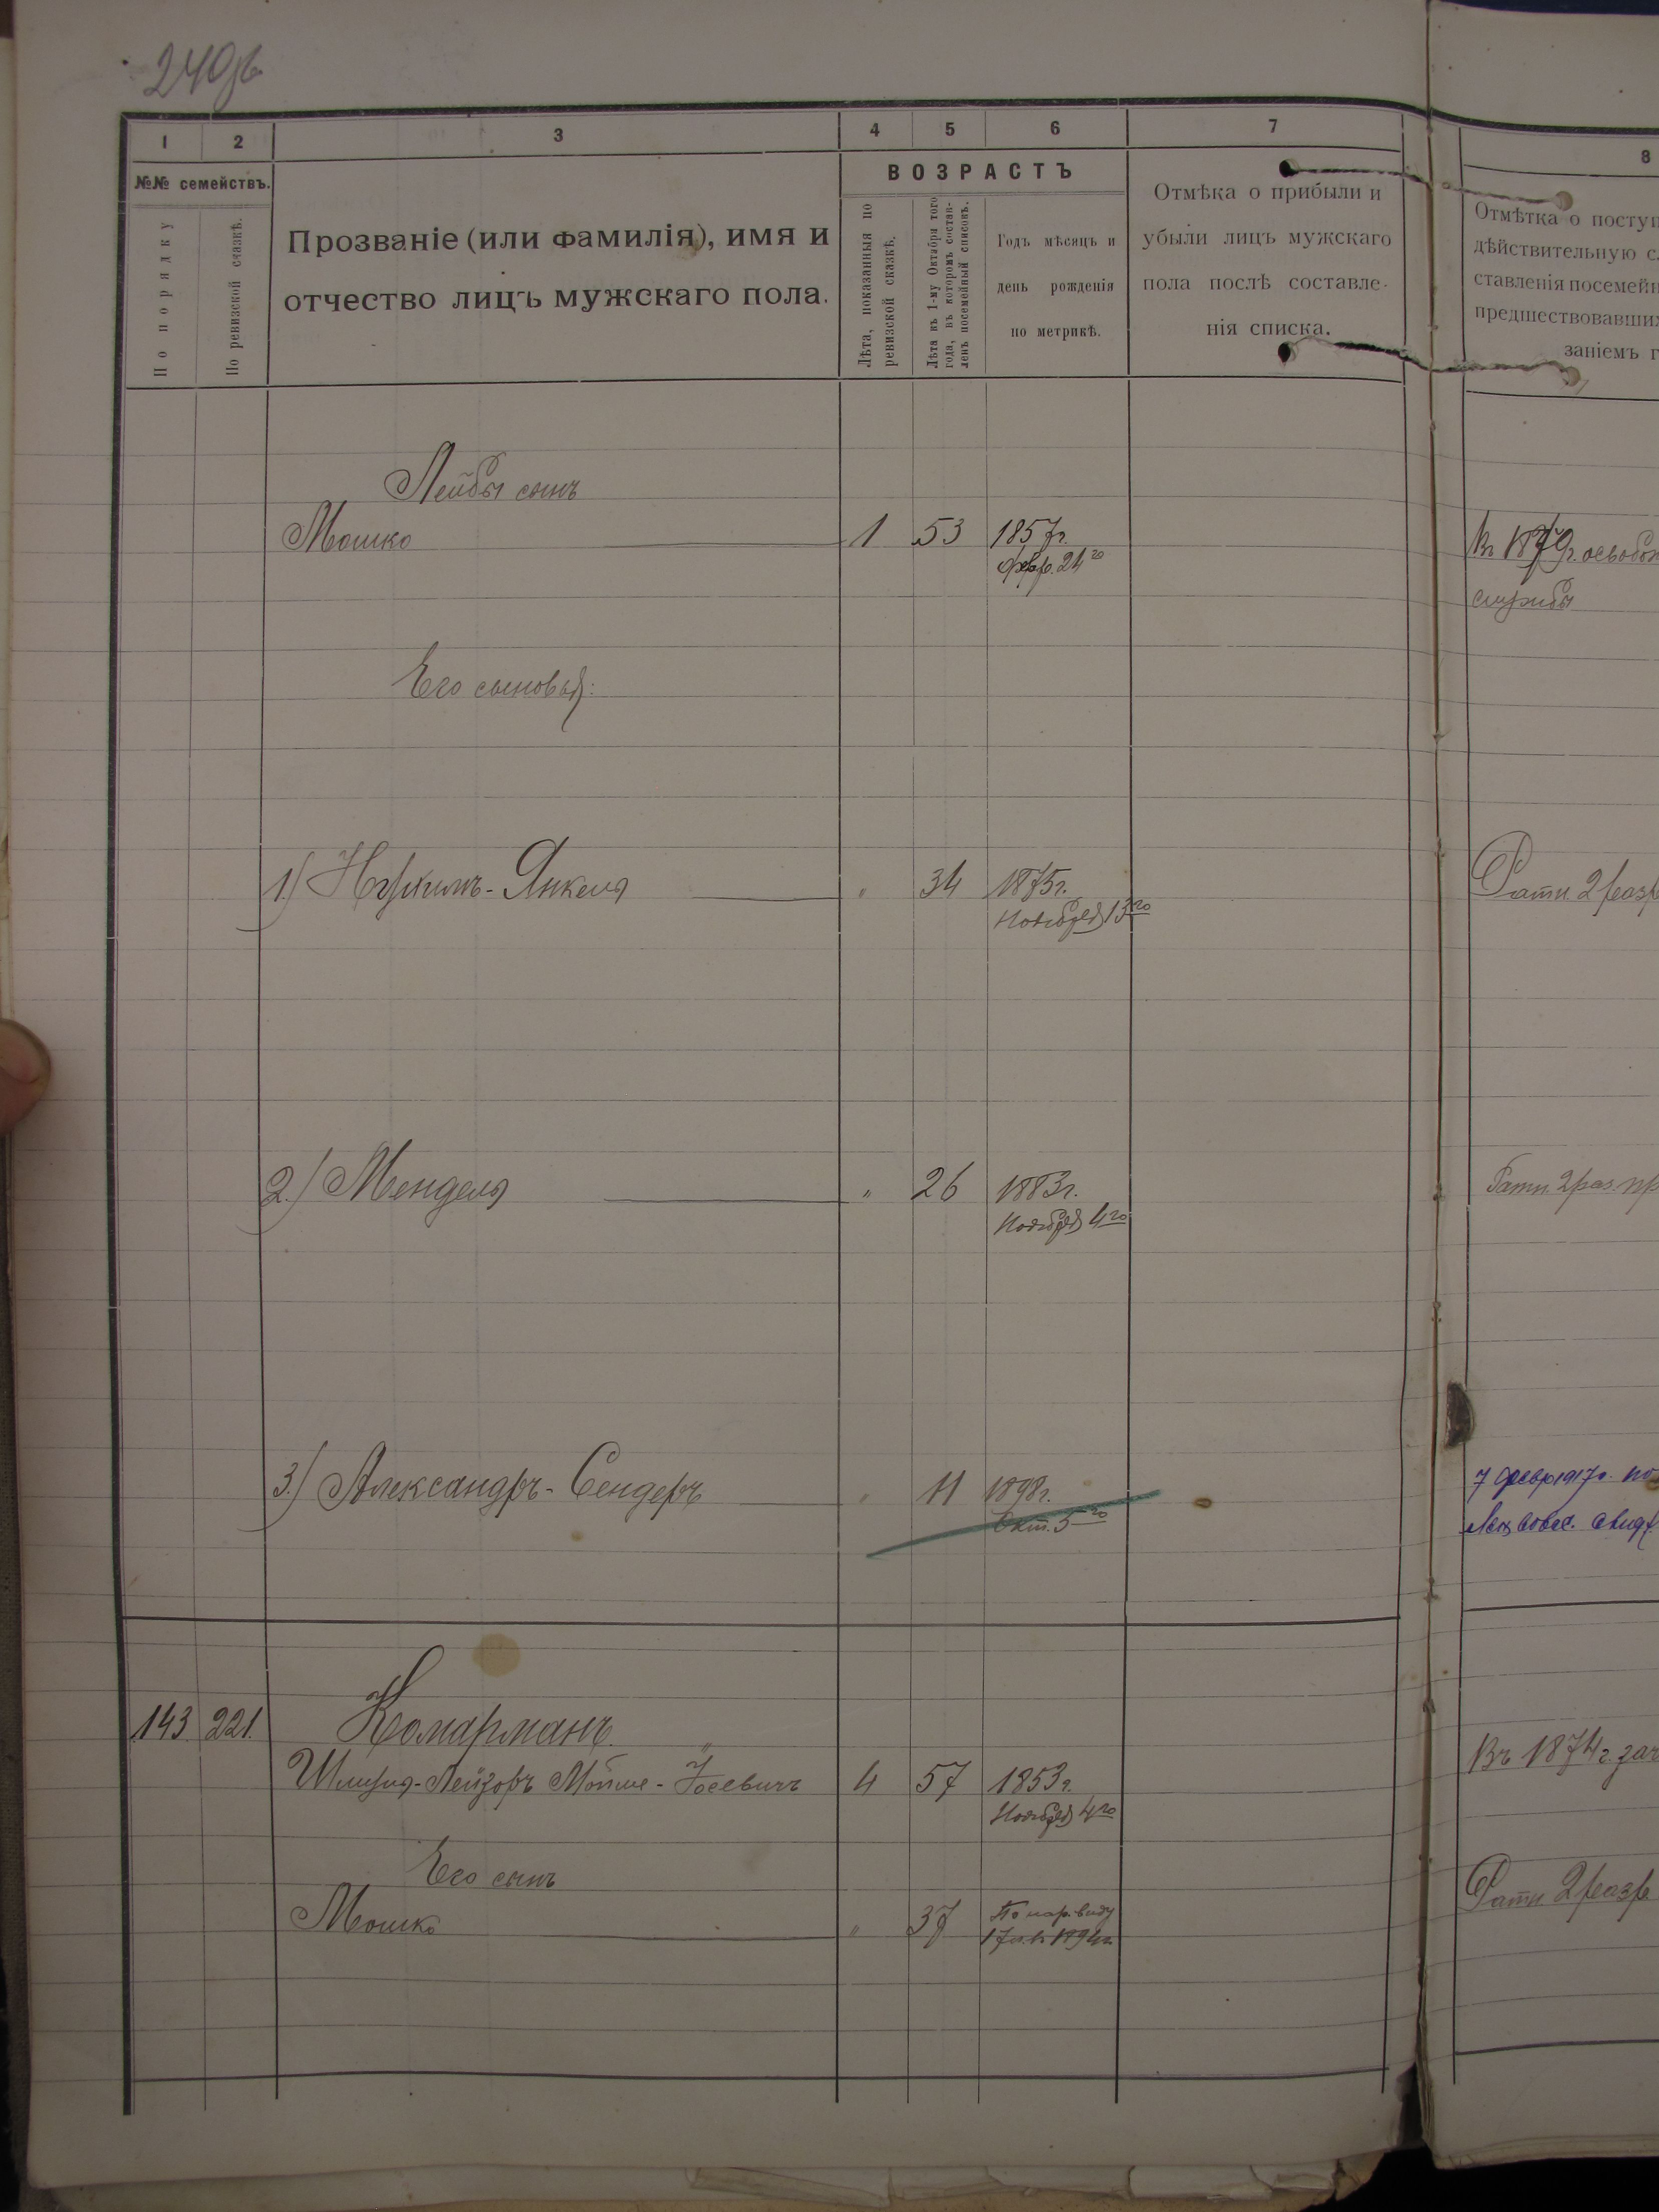 240об
1 2 3 4 5 6 7
№№ семействъ.
По порядку
По ревизской сказкѣ.
Прозваніе (или фамилія), имя и
отчество лицъ мужскаго пола.
ВОЗРАСТЪ
Лѣта, показанныя по
ревизской сказкѣ.
Лѣта къ 1-му Октября того
года, въ которомъ состав-
ленъ посемейный списокъ.
Годъ мѣсяцъ и
день рожденія
по метрикѣ.
Отмѣка о прибыли и
убыли лицъ мужскаго
пола послѣ составле-
нія списка.
8
Отмѣтка о поступ
дѣйствительную с
ставленія посемейн
предшествовавши
заніемъ г
Лейбы сынъ
Мошко 1 53 1857г. Въ 1879г. освобож
Февр. 24го
службы
Его сыновья:
1.) Нухимъ-Янкель " 34 1875г. Ратн. 2 разр
Ноября 13го
2.) Мендель " 26 1883г. Ратн. 2 раз. пр
Ноября 4го
3.) Александръ-Сендеръ " 11 1898г. 7 февр 1917г. по
Окт. 5го
свид.
143. 221. Комарманъ.
Шлиома-Лейзоръ Мойше-Іосевичъ 4 57 1853г. Въ 1874г. зач
Ноября 4го
Его сынъ
Мошко " 37 По нар. виду Ратн. 2 разр
1894г.